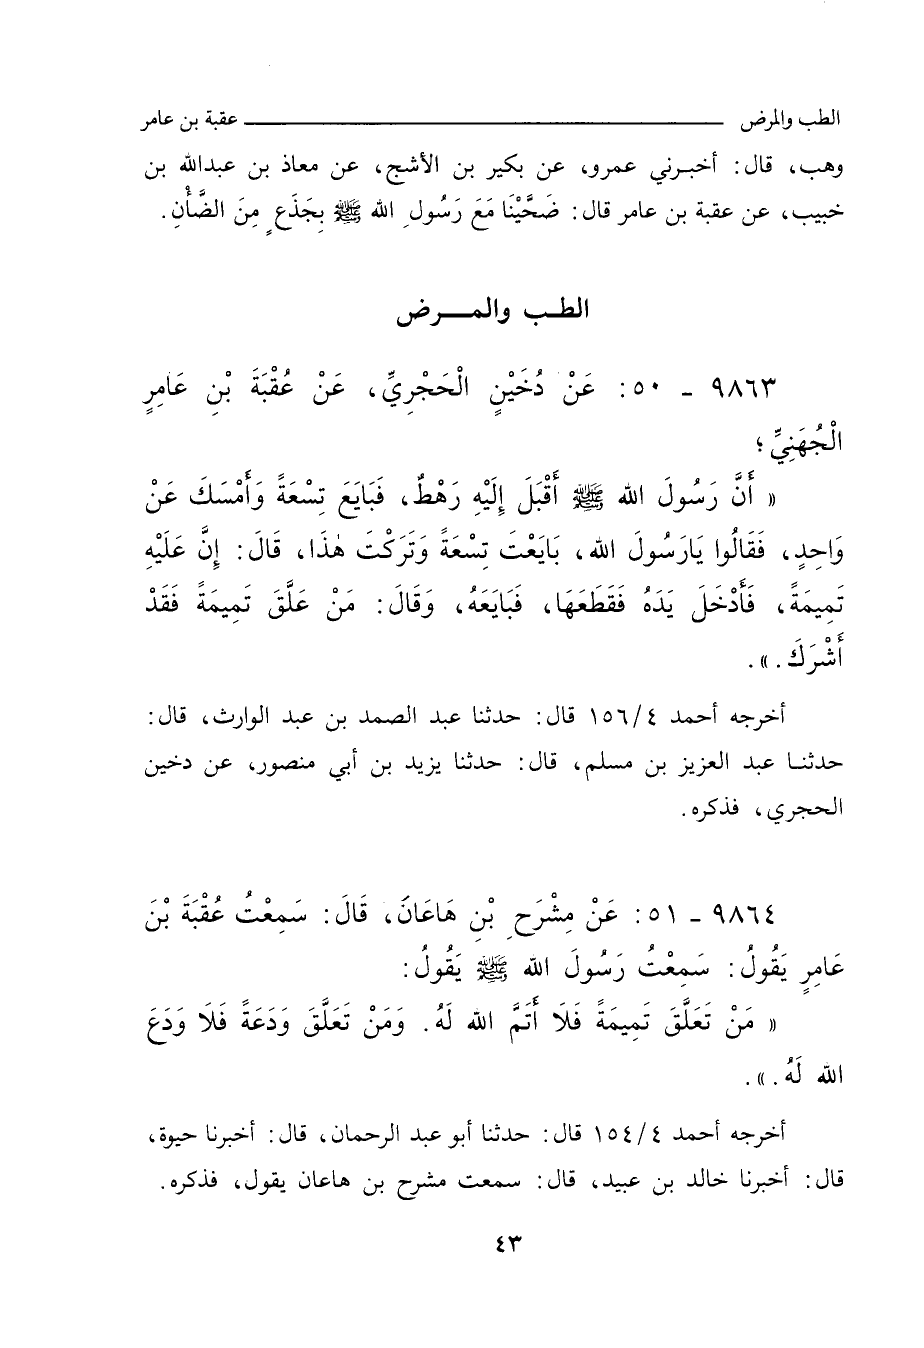 الطب والمرض ــــــــــــــــ عقبة بن عامر
وهب، قال: أخبرني عمرو، عن بكير بن الأشج، عن معاذ بن عبدالله بن
خبيب، عن عقبة بن عامر قال: ضَحَّيْنَا مَعَ رَسُولِ الله ﷺ بِجَذَعٍ مِنَ الضَّأْنِ.
الطب والمرض
٩٨٦٣ - ٥٠: عَنْ دُخَيْنٍ الْحَجْرِيِّ، عَنْ عُقْبَةَ بْنِ عَامِرٍ
الْجُهَنِيِّ؛
« أَنَّ رَسُولَ الله ﷺ أَقْبَلَ إِلَيْهِ رَهْطٌ، فَبَايَعَ تِسْعَةً وَأَمْسَكَ عَنْ
وَاحِدٍ، فَقَالُوا يَارَسُولَ الله، بَايَعْتَ تِسْعَةً وَتَرَكْتَ هٰذَا، قَالَ: إِنَّ عَلَيْهِ
تَمِيمَةً، فَأَدْخَلَ يَدَهُ فَقَطَعَهَا، فَبَايَعَهُ، وَقَالَ: مَنْ عَلَّقَ تَمِيمَةً فَقَدْ
أَشْرَكَ .».
أخرجه أحمد ٤/١٥٦ قال: حدثنا عبد الصمد بن عبد الوارث، قال:
حدثنا عبد العزيز بن مسلم، قال: حدثنا يزيد بن أبي منصور، عن دخين
الحجري، فذكره.
٩٨٦٤ - ٥١: عَنْ مِشْرَحِ بْنِ هَاعَانَ، قَالَ: سَمِعْتُ عُقْبَةَ بْنَ
عَامِرٍ يَقُولُ: سَمِعْتُ رَسُولَ الله ﷺ يَقُولُ:
« مَنْ تَعَلَّقَ تَمِيمَةً فَلَا أَتَمَّ الله لَهُ. وَمَنْ تَعَلَّقَ وَدَعَةً فَلَا وَدَعَ
الله لَهُ .».
أخرجه أحمد ٤/١٥٤ قال: حدثنا أبو عبد الرحمان، قال: أخبرنا حيوة،
قال: أخبرنا خالد بن عبيد، قال: سمعت مشرح بن هاعان يقول، فذكره.
٤٣